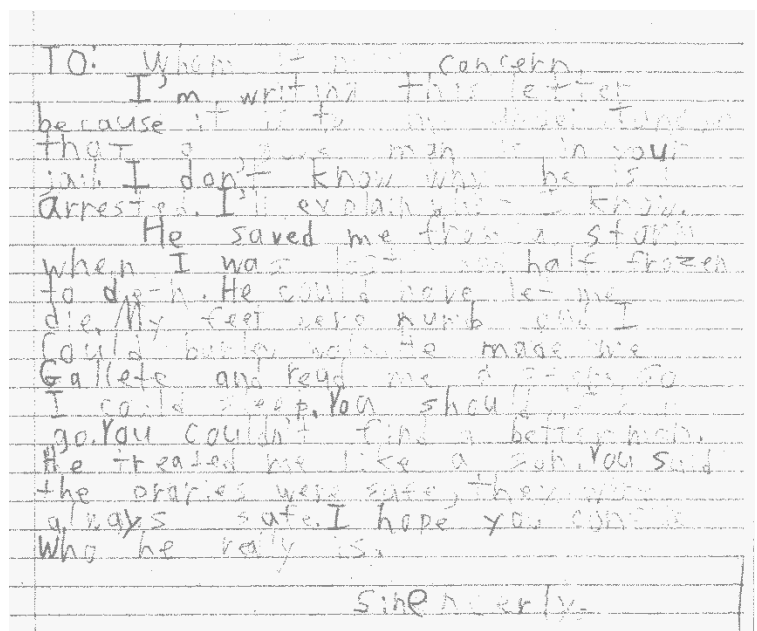 TO: Whom it may concern
I'm writing this letter
because it is to my
that a man is in your
jail. I don't know why he is
arrested. I'll explain what I know.
He saved me from a storm
when I was lost and half frozen
to deth. He could have let me
die. My feet were numb and I
could walk. He made me
Gallete and read me a story so
I could sleep. You should
go. You couldn't find a better man.
He treated me like a son. You said
the praries were safe, they
always safe. I hope you
who he really is.
Sinencerly.